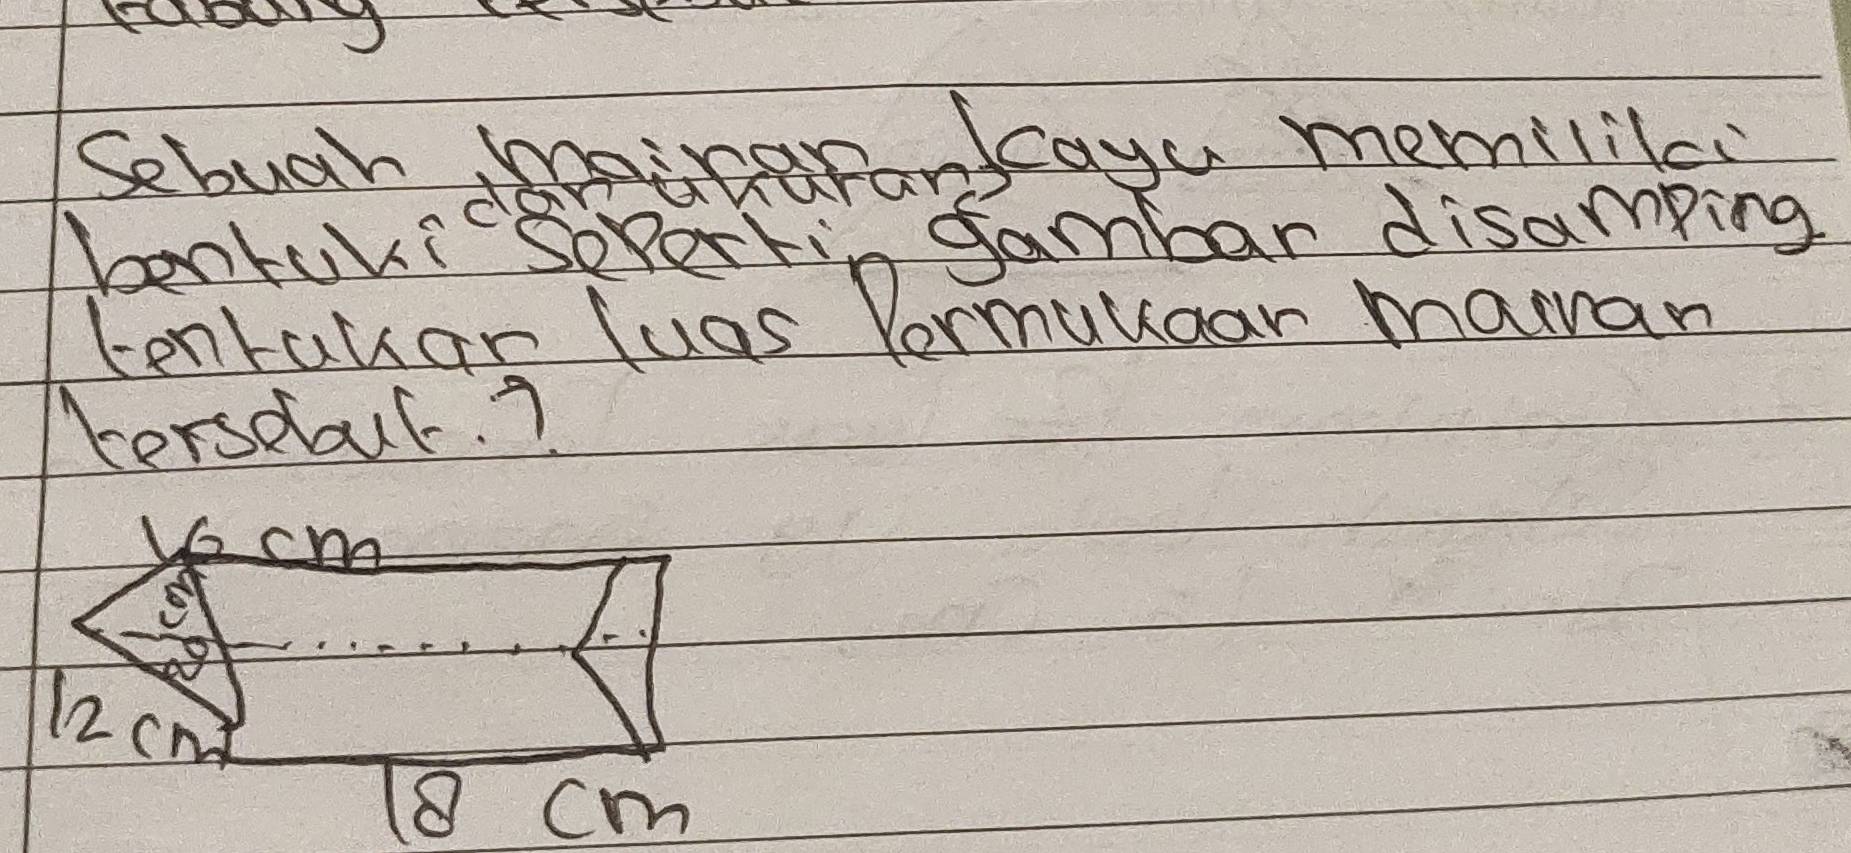 Sebuah mainan kayu memiliki
bentuki dan ukuran seperti gambar disamping
tentukan luas Permukaan mainan
tersebut.?
16 cm
20 cm
12 cm
18 cm